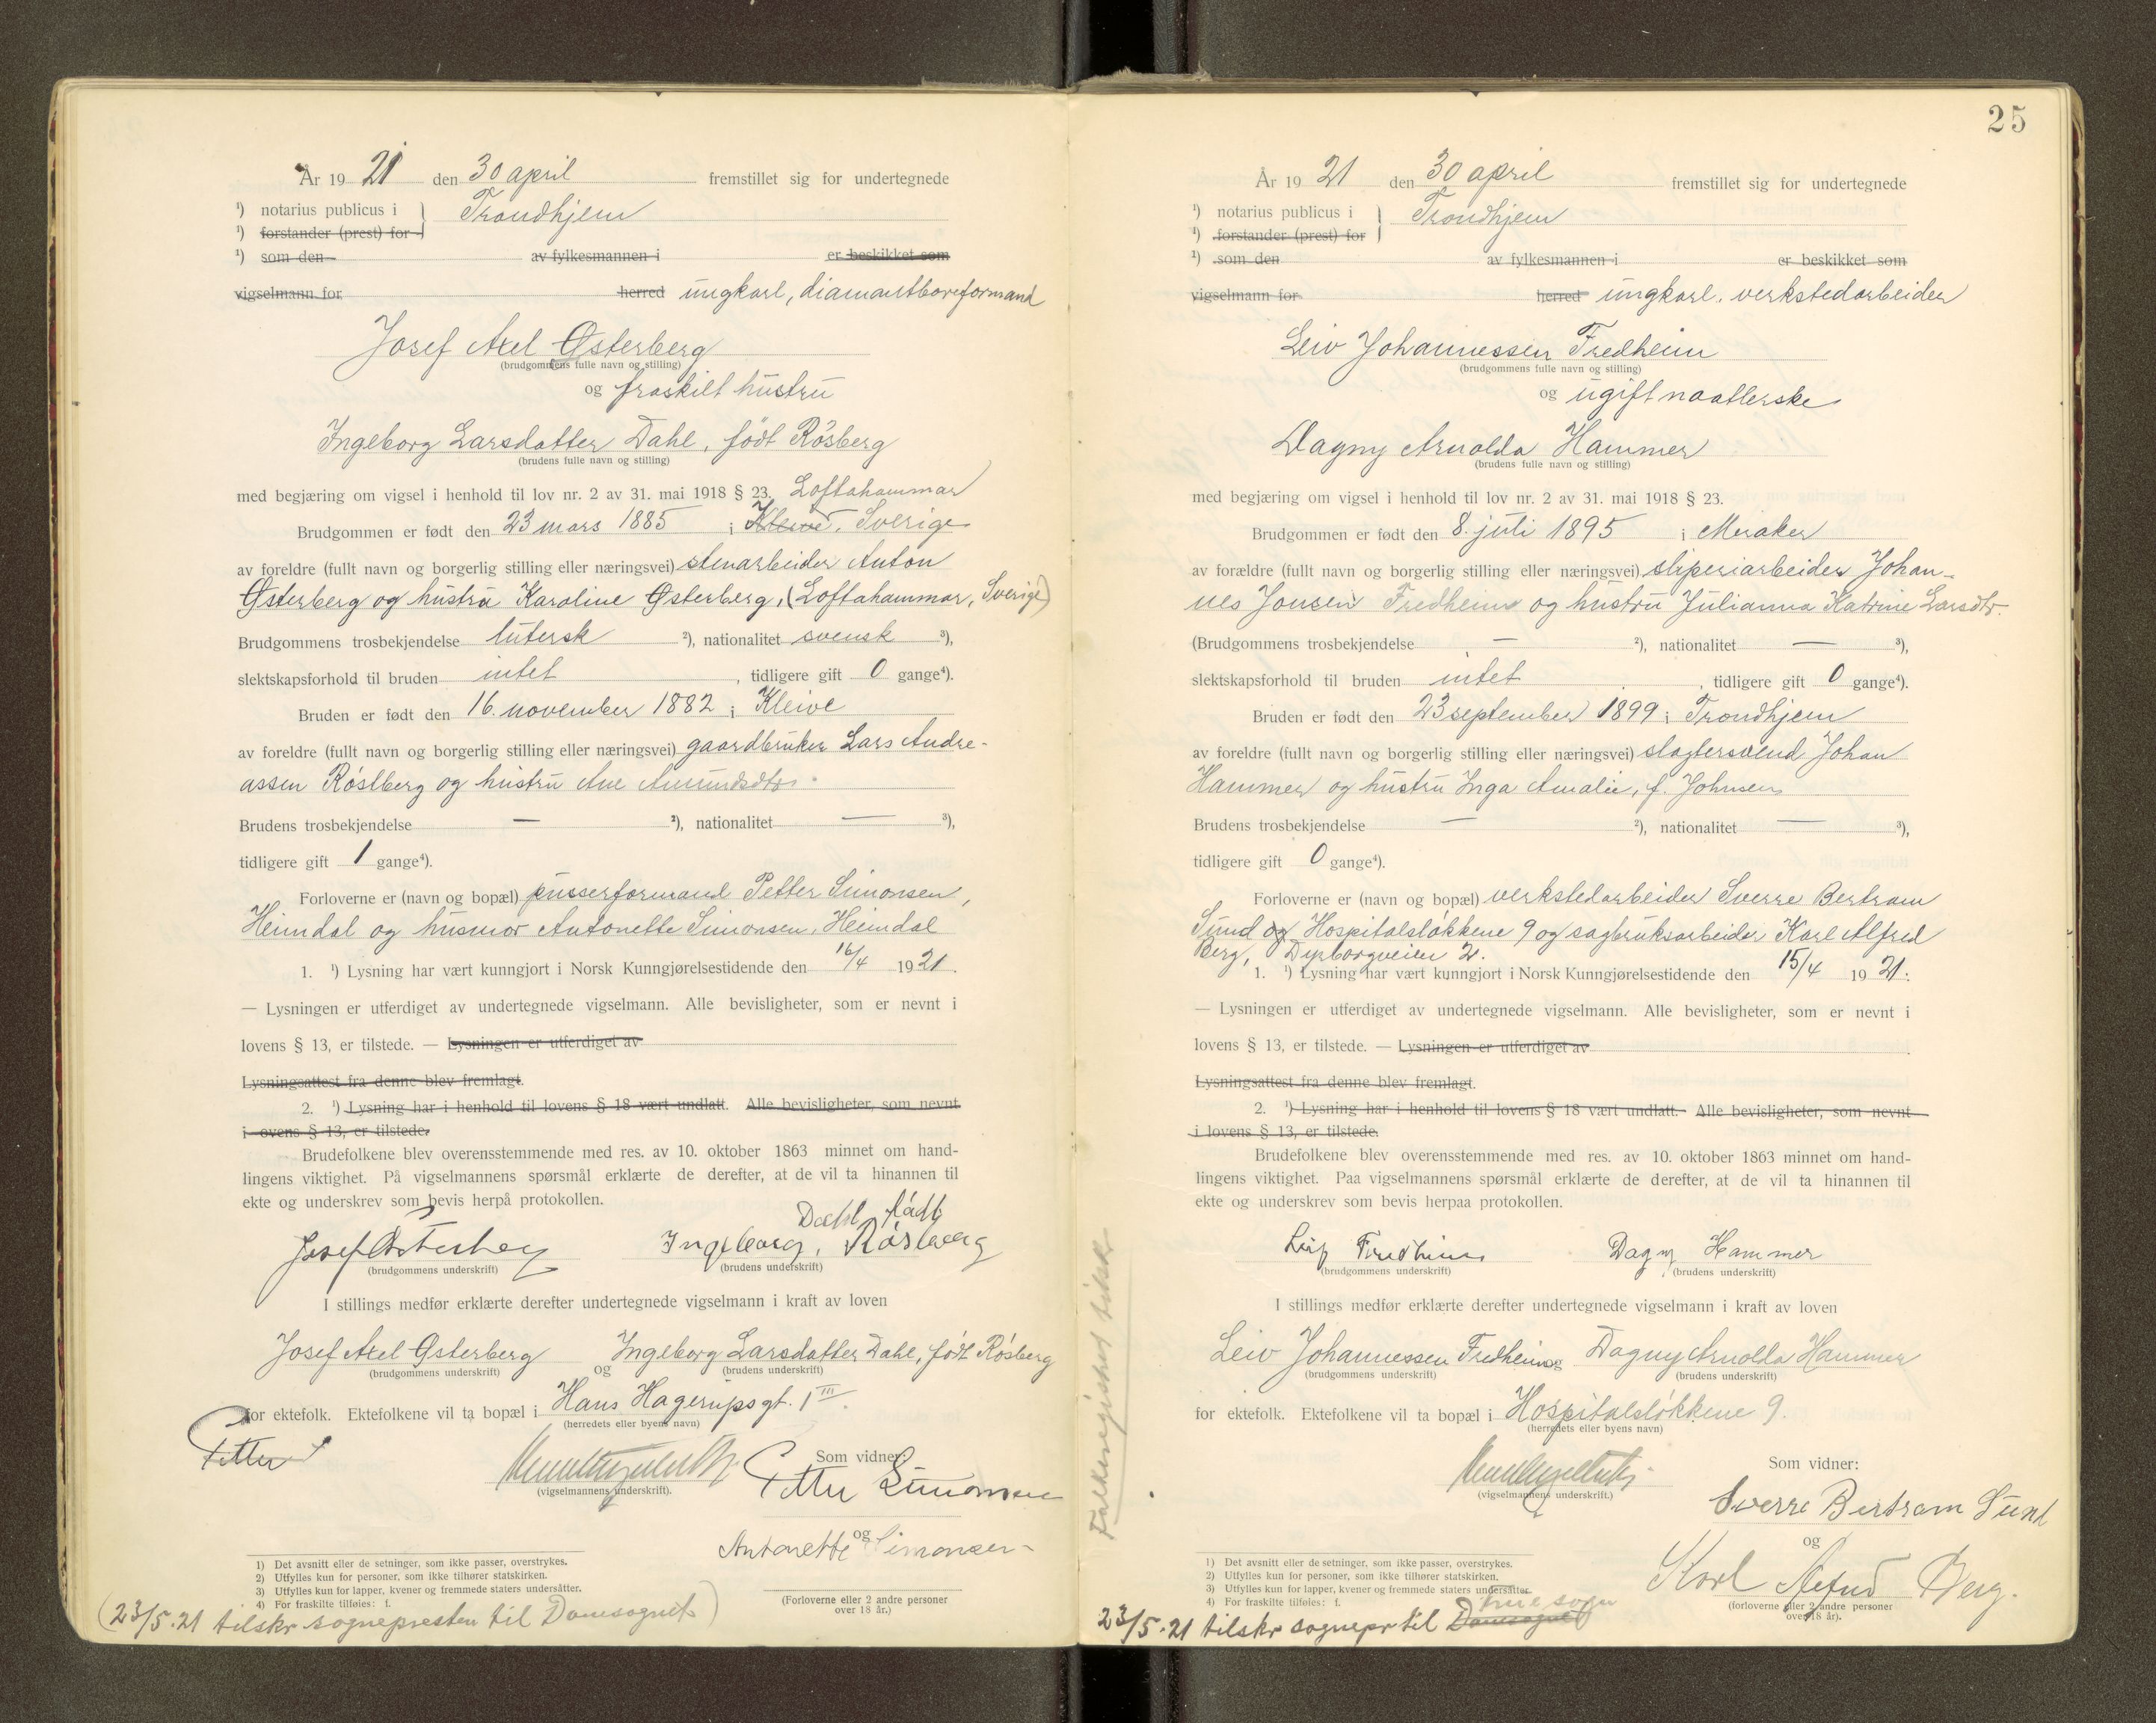 År 19 21 den 30 april fremstillet sig for undertegnede
¹) notarius publicus i } Trondhjem
¹) forstander (prest) for
¹) som den av fylkesmannen i er beskikket som
vigselmann for herred ungkarl, diamantboreformand
Josef Axel Østerberg
(brudgommens fulle navn og stilling)
og fraskilt hustru
Ingeborg Larsdatter Dahl, født Rösberg
(brudens fulle navn og stilling)
med begjæring om vigsel i henhold til lov nr. 2 av 31. mai 1918 § 23. Loftahammar
Brudgommen er født den 23 mars 1885 i Kleive, Sverige
av foreldre (fullt navn og borgerlig stilling eller næringsvei) stenarbeider Anton
Østerberg og hustru Karoline Østerberg, (Loftahammar, Sverige)
Brudgommens trosbekjendelse lutersk ²), nationalitet svensk ³),
slektskapsforhold til bruden intet , tidligere gift 0 gange⁴).
Bruden er født den 16. november 1882 i Kleive
av foreldre (fullt navn og borgerlig stilling eller næringsvei) gaardbruker Lars Andre-
assen Röslberg og hustru Ane Amundsdtr.
Brudens trosbekjendelse — ²), nationalitet — ³),
tidligere gift 1 gange⁴).
Forloverne er (navn og bopæl) pusserformand Petter Simonsen,
Heimdal og husmor Antonette Simonsen, Heimdal
1. ¹) Lysning har vært kunngjort i Norsk Kunngjørelsestidende den 16/4 19 21.
— Lysningen er utferdiget av undertegnede vigselmann. Alle bevisligheter, som er nevnt i
lovens § 13, er tilstede. — Lysningen er utferdiget av
Lysningsattest fra denne blev fremlagt.
2. ¹) Lysning har i henhold til lovens § 18 vært undlatt. Alle bevisligheter, som nevnt
i ovens § 13, er tilstede.
Brudefolkene blev overensstemmende med res. av 10. oktober 1863 minnet om hand-
lingens viktighet. På vigselmannens spørsmål erklærte de derefter, at de vil ta hinannen til
ekte og underskrev som bevis herpå protokollen.
Dahl född
Josef Østerberg Ingeborg, Rösberg
(brudgommens underskrift) (brudens underskrift)
I stillings medfør erklærte derefter undertegnede vigselmann i kraft av loven
Josef Axel Østerberg og Ingeborg Larsdatter Dahl, født Rösberg
(brudgommens underskrift) (brudens underskrift)
for ektefolk. Ektefolkene vil ta bopæl i Hans Hagerupsgt. 1 III.
(herredets eller byens navn)
Petter S
Som vidner:
(vigselmannens underskrift). Petter Simonsen
og
Antonette Simonsen
1) Det avsnitt eller de setninger, som ikke passer, overstrykes.
2) Utfylles kun for personer, som ikke tilhører statskirken.
3) Utfylles kun for lapper, kvener og fremmede staters undersåtter.
4) For fraskilte tilføies: f.
(Forloverne eller 2 andre personer
over 18 år.)
(23/5.21 tilskr sognepresten til Domsognet)
25
År 19 21 den 30 april fremstillet sig for undertegnede
¹) notarius publicus i } Trondhjem
¹) forstander (prest) for
¹) som den av fylkesmannen i er beskikket som
vigselmann for herred ungkarl, verkstedarbeider
Leiv Johannessen Fredheim
(brudgommens fulle navn og stilling)
og ugift naatlerske
Dagny Arnolda Hammer
(brudens fulle navn og stilling)
med begjæring om vigsel i henhold til lov nr. 2 av 31. mai 1918 § 23.
Brudgommen er født den 8. juli 1895 i Meraker
av forældre (fullt navn og borgerlig stilling eller næringsvei) sliperiarbeider Johan-
nes Jonsen Fredheim og hustru Julianna Katrine Larsdtr.
(Brudgommens trosbekjendelse — ²), nationalitet — ³),
slektskapsforhold til bruden intet , tidligere gift 0 gange⁴).
Bruden er født den 23 september 1899 i Trondhjem
av foreldre (fullt navn og borgerlig stilling eller næringsvei) slagtersvend Johan
Hammer og hustru Inga Amalie, f. Johnsen
Brudens trosbekjendelse — ²), nationalitet — ³),
tidligere gift 0 gange⁴).
Forloverne er (navn og bopæl) verkstedarbeider Sverre Bertram
Sund og Hospitalsløkkene 9 og sagbruksarbeider Karl Alfred
Berg, Dyrborgveien 2.
1. ¹) Lysning har vært kunngjort i Norsk Kunngjørelsestidende den 15/4 19 21.
— Lysningen er utferdiget av undertegnede vigselmann. Alle bevisligheter, som er nevnt i
lovens § 13, er tilstede. — Lysningen er utferdiget av
Lysningsattest fra denne blev fremlagt.
2. ¹) Lysning har i henhold til lovens § 18 vært undlatt. Alle bevisligheter, som nevnt
i lovens § 13, er tilstede.
Brudefolkene blev overensstemmende med res. av 10. oktober 1863 minnet om hand-
lingens viktighet. Paa vigselmannens spørsmål erklærte de derefter, at de vil ta hinannen til
ekte og underskrev som bevis herpaa protokollen.
Leif Fredheim Dagny Hammer
(brudgommens underskrift) (brudens underskrift)
I stillings medfør erklærte derefter undertegnede vigselmann i kraft av loven
Leiv Johannessen Fredheim og Dagny Arnolda Hammer
(brudgommens underskrift) (brudens underskrift)
for ektefolk. Ektefolkene vil ta bopæl i Hospitalsløkkene 9.
(herredets eller byens navn)
Som vidner:
(vigselmannens underskrift.)
Sverre Bertram Sund
og
Karl Alfred Berg.
(forloverne eller 2 andre personer
over 18 år).
1) Det avsnitt eller de setninger, som ikke passer, overstrykes.
2) Utfylles kun for personer, som ikke tilhører statskirken.
3) Utfylles kun for lapper, kvener og fremmede staters undersåtter.
4) For fraskilte tilføies: f.
23/5.21 tilskr sognepr til Domsognet
Folkeregistret tilskr